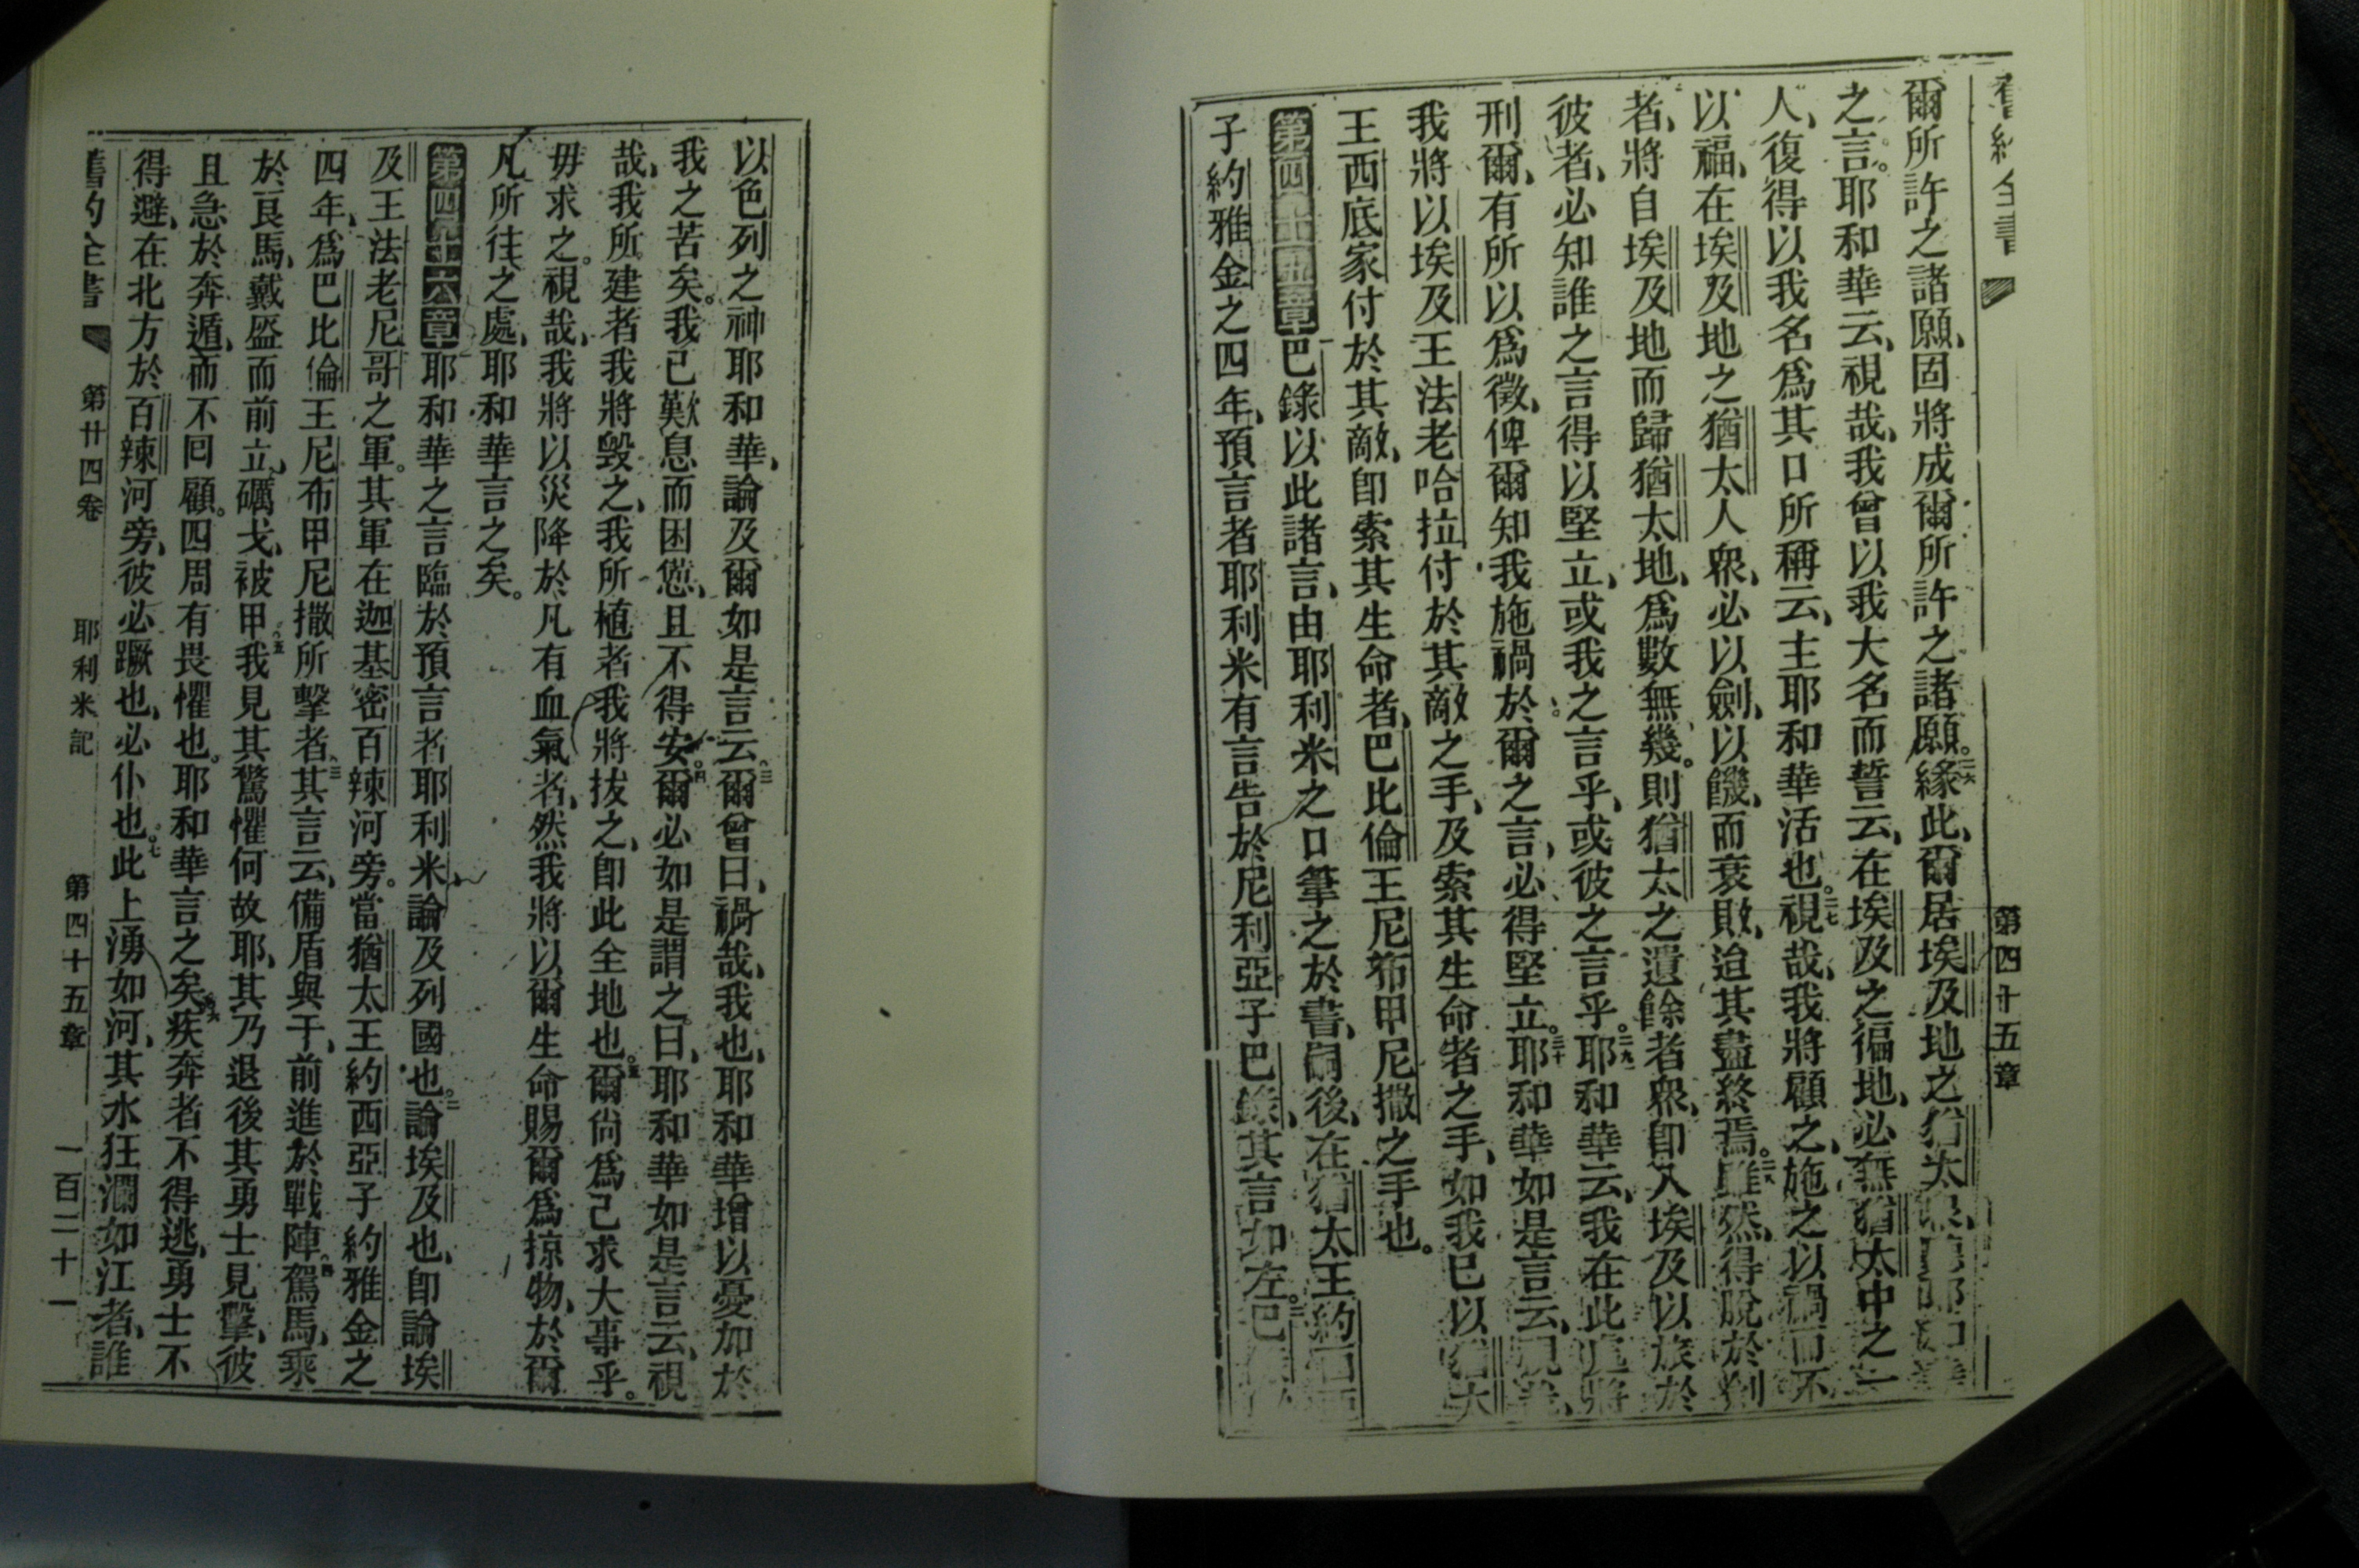 舊約全書
第四十五章
爾所許之諸願、固將成爾所許之諸願。二六緣此、爾居埃及地之猶太
之言。耶和華云、視哉、我曾以我大名而誓云、在埃及之徧地、必無猶太中之一
人、復得以我名爲其口所稱云、主耶和華活也。二七視哉、我將顧之、施之以禍而不
以福、在埃及地之猶太人衆、必以劍、以饑、而衰敗、迨其盡終焉。二八雖然、得脫於劍
者、將自埃及地而歸猶太地、爲數無幾。則猶太之遺餘者衆、即入埃及以旅於
彼者、必知誰之言得以堅立、或我之言乎、或彼之言乎。二九耶和華云、我在此處將
刑爾、有所以爲徵、俾爾知我施禍於爾之言、必得堅立。三十耶和華如是言云、視哉、
我將以埃及王法老哈拉付於其敵之手、及索其生命者之手、如我已以猶大
王西底家付於其敵、即索其生命者、巴比倫王尼布甲尼撒之手也。
第四十五章巴錄以此諸言、由耶利米之口筆之於書、嗣後、在猶太王約西亞
子約雅金之四年、預言者耶利米有言告於尼利亞子巴錄、其言如左。二巴
以色列之神耶和華、論及爾如是言云。三爾曾曰、禍哉、我也、耶和華增以憂加於
我之苦矣。我已歎息而困憊、且不得安。四爾必如是謂之曰、耶和華如是言云、視
哉、我所建者我將毀之、我所植者我將拔之、即此全地也。五爾尙爲己求大事乎。
毋求之。視哉、我將以災降於凡有血氣者、然我將以爾生命賜爾爲掠物、於爾
凡所往之處、耶和華言之矣。
第四十六章耶和華之言臨於預言者耶利米、論及列國也。二論埃及也、即論埃
及王法老尼哥之軍。其軍在迦基密百辣河旁。當猶太王約西亞子約雅金之
四年、爲巴比倫王尼布甲尼撒所擊者、三其言云、備盾與干、前進於戰陣。四駕馬、乘
於良馬、戴盔而前立、礪戈、被甲。五我見其驚懼何故耶、其乃退後其勇士見擊、彼
且急於奔遁、而不回顧。四周有畏懼也。耶和華言之矣。六疾奔者不得逃、勇士不
得避、在北方於百辣河旁、彼必蹶也、必仆也。七此上湧如河、其水狂瀾如江者、誰
舊約全書 第廿四卷 耶利米記 第四十五章 一百二十一